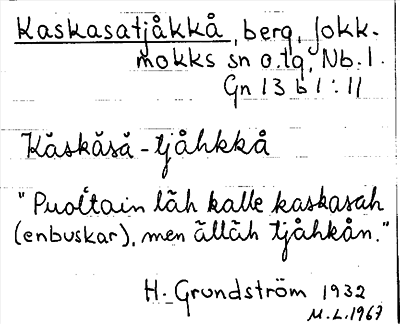 Kaskasatjåkkå, berg, Jokk-
mokks sn o. tg, Nb. l.
Gn 13 b 1:11
Kăskăså - tjåhkkå
"Puoĺtain läh kalle kaskasah
(enbuskar), men ällāh tjåhkån."
H. Grundström 1932
M.L. 1967